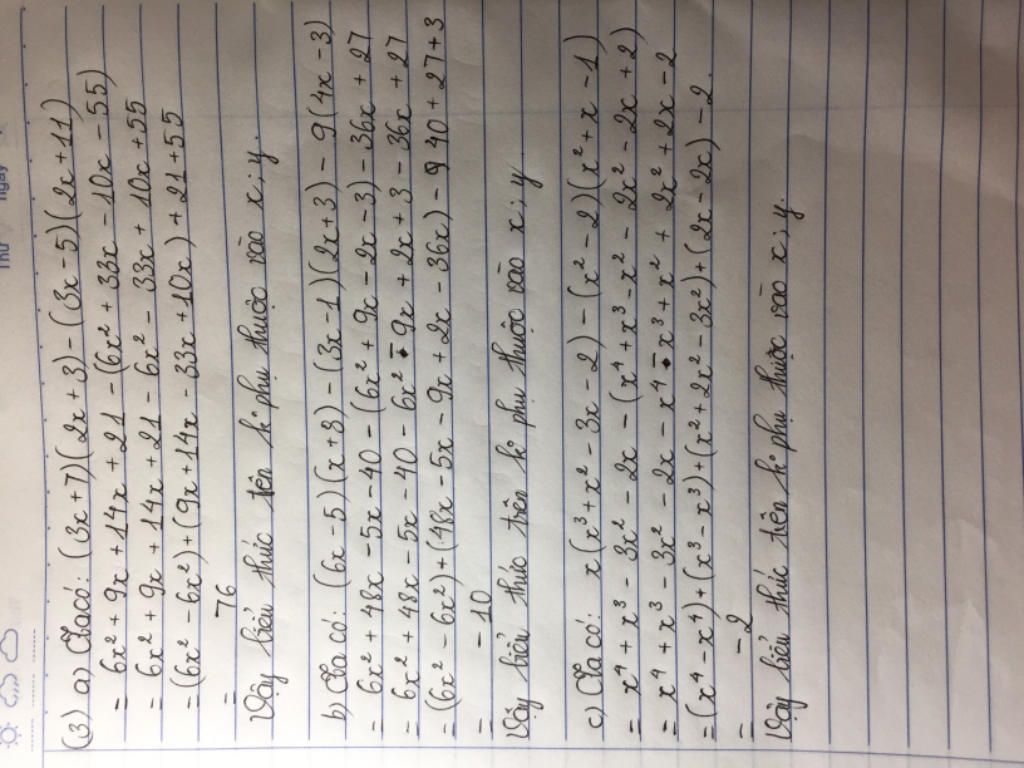 Thứ
Ngày
(3) a) Ta có: (3x + 7)(2x + 3) - (3x - 5)(2x + 11)
= 6x² + 9x + 14x + 21 - (6x² + 33x - 10x - 55)
= 6x² + 9x + 14x + 21 - 6x² - 33x + 10x + 55
= (6x² - 6x²) + (9x + 14x - 33x + 10x) + 21 + 55
= 76
Vậy biểu thức trên k° phụ thuộc vào x; y.
b) Ta có: (6x - 5)(x + 8) - (3x - 1)(2x + 3) - 9(4x - 3)
= 6x² + 48x - 5x - 40 - (6x² + 9x - 2x - 3) - 36x + 27
= 6x² + 48x - 5x - 40 - 6x² - 9x + 2x + 3 - 36x + 27
= (6x² - 6x²) + (48x - 5x - 9x + 2x - 36x) - 40 + 27 + 3
= - 10
Vậy biểu thức trên k° phụ thuộc vào x; y
c) Ta có: x(x³ + x² - 3x - 2) - (x² - 2)(x² + x - 1)
= x⁴ + x³ - 3x² - 2x - (x⁴ + x³ - x² - 2x² - 2x + 2)
= x⁴ + x³ - 3x² - 2x - x⁴ - x³ + x² + 2x² + 2x - 2
= (x⁴ - x⁴) + (x³ - x³) + (x² + 2x² - 3x²) + (2x - 2x) - 2.
= - 2
Vậy biểu thức trên k° phụ thuộc vào x; y.